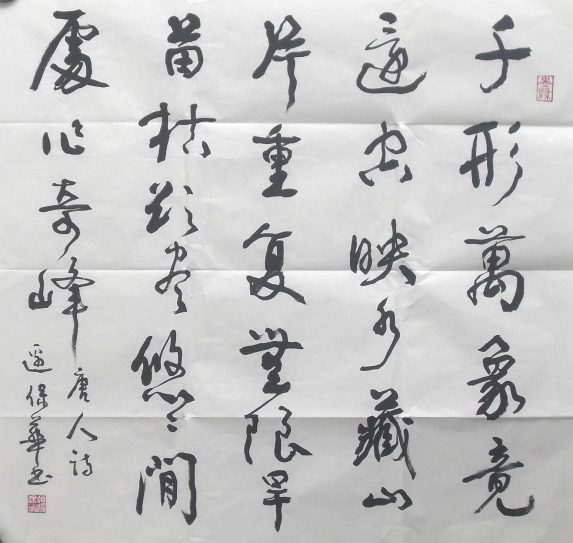 千形萬象竟
還空映水藏山
片重复無限旱
苗枯欲尽悠悠閒
處作奇峰
唐人詩
保華书